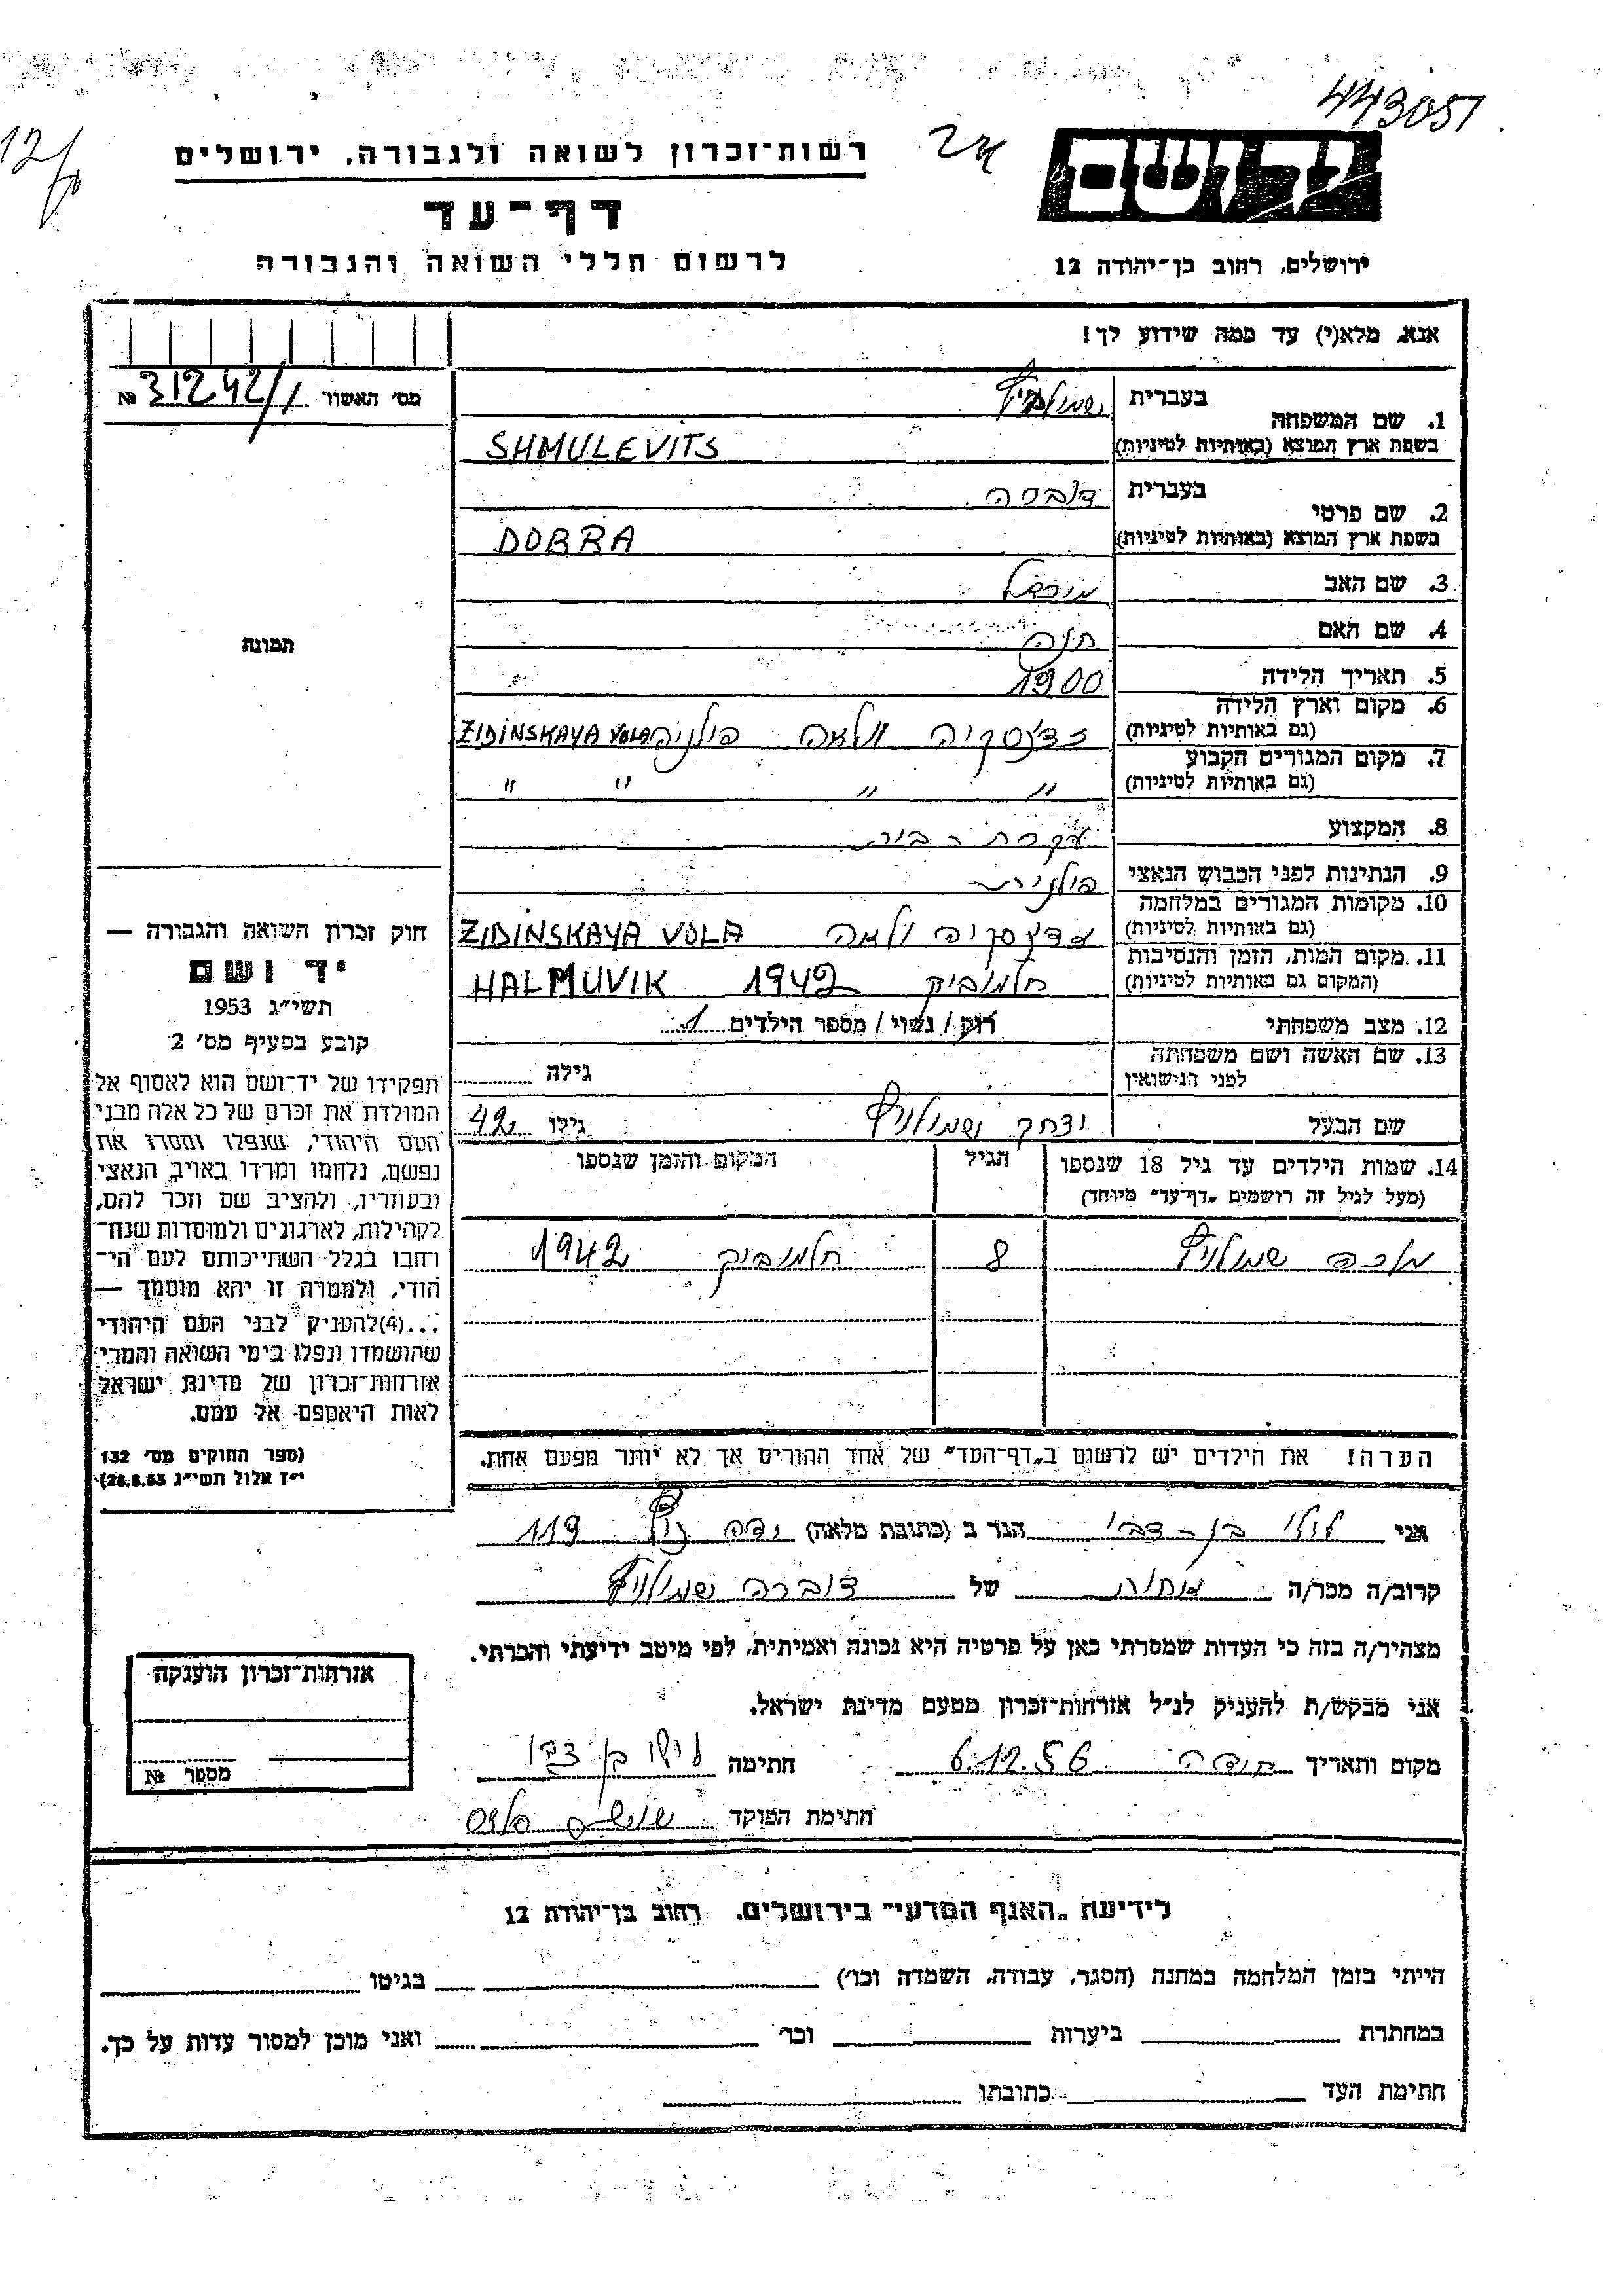 443051
12/
24
רשות־זכרון לשואה ולגבורה, ירושלים
יד ושם
דף־עד
לרשום חללי השואה והגבורה
ירושלים, רחוב בן־יהודה 12
אנא, מלא(י) עד כמה שידוע לך!
מס׳ האשור 31242/1 №
1. שם המשפחה
בעברית שמולביץ
בשפת ארץ המוצא (באותיות לטיניות) SHMULEVITS
2. שם פרטי
בעברית דוברה
בשפת ארץ המוצא (באותיות לטיניות) DOBRA
3. שם האב מיכאל
4. שם האם חנה
5. תאריך הלידה 1900
6. מקום וארץ הלידה
(גם באותיות לטיניות) וולאה פולניה ZIDINSKAYA VOLA
7. מקום המגורים הקבוע
(גם באותיות לטיניות) " " " "
8. המקצוע עקרת - בית
9. הנתינות לפני הכבוש הנאצי פולנית
10. מקומות המגורים במלחמה
(גם באותיות לטיניות) וולאה ZIDINSKAYA VOLA
11. מקום המות, הזמן והנסיבות
(המקום גם באותיות לטיניות) חלמוביק 1942 HALMUVIK
12. מצב משפחתי רווק / נשוי / מספר הילדים 1
13. שם האשה ושם משפחתה
לפני הנישואין גילה
שם הבעל יצחק שמולוויץ גילו 42
14. שמות הילדים עד גיל 18 שנספו הגיל המקום והזמן שנספו
(מעל לגיל זה רושמים „דף־עד״ מיוחד)
מלכה שמולוויץ 8 חלמוביק 1942
הערה! את הילדים יש לרשום ב„דף־העד״ של אחד ההורים אך לא יותר מפעם אחת.
תמונה
חוק זכרון השואה והגבורה —
יד ושם
תשי״ג 1953
קובע בסעיף מס׳ 2
תפקידו של יד־ושם הוא לאסוף אל
המולדת את זכרם של כל אלה מבני
העם היהודי, שנפלו ומסרו את
נפשם, נלחמו ומרדו באויב הנאצי
ובעוזריו, ולהציב שם וזכר להם,
לקהילות, לארגונים ולמוסדות שנח־
רחבו בגלל השתייכותם לעם הי־
הודי, ולמטרה זו יהא מוסמך —
...(4)להעניק לבני העם היהודי
שהושמדו ונפלו בימי השואה והמרי
אזרחות־זכרון של מדינת ישראל
לאות היאספם אל עמם.
(ספר החוקים מס׳ 132
י״ז אלול תשי״ג 28.8.53)
אני לולי בן-צבי הגר ב (כתובת מלאה) 119
קרוב/ה מכר/ה אחות של דוברה שמולוויץ
מצהיר/ה בזה כי העדות שמסרתי כאן על פרטיה היא נכונה ואמיתית, לפי מיטב ידיעתי והכרתי.
אני מבקש/ת להעניק לנ״ל אזרחות־זכרון מטעם מדינת ישראל.
מקום ותאריך 6.12.56 חתימה לולי בן צבי
חתימת הפוקד
אזרחות־זכרון הוענקה
מספר №
לידיעת „האגף המדעי״ בירושלים. רחוב בן־יהודה 12
הייתי בזמן המלחמה במחנה (הסגר, עבודה, השמדה וכו׳) בגיטו
במחתרת ביערות וכו׳ ואני מוכן למסור עדות על כך.
חתימת העד כתובתו